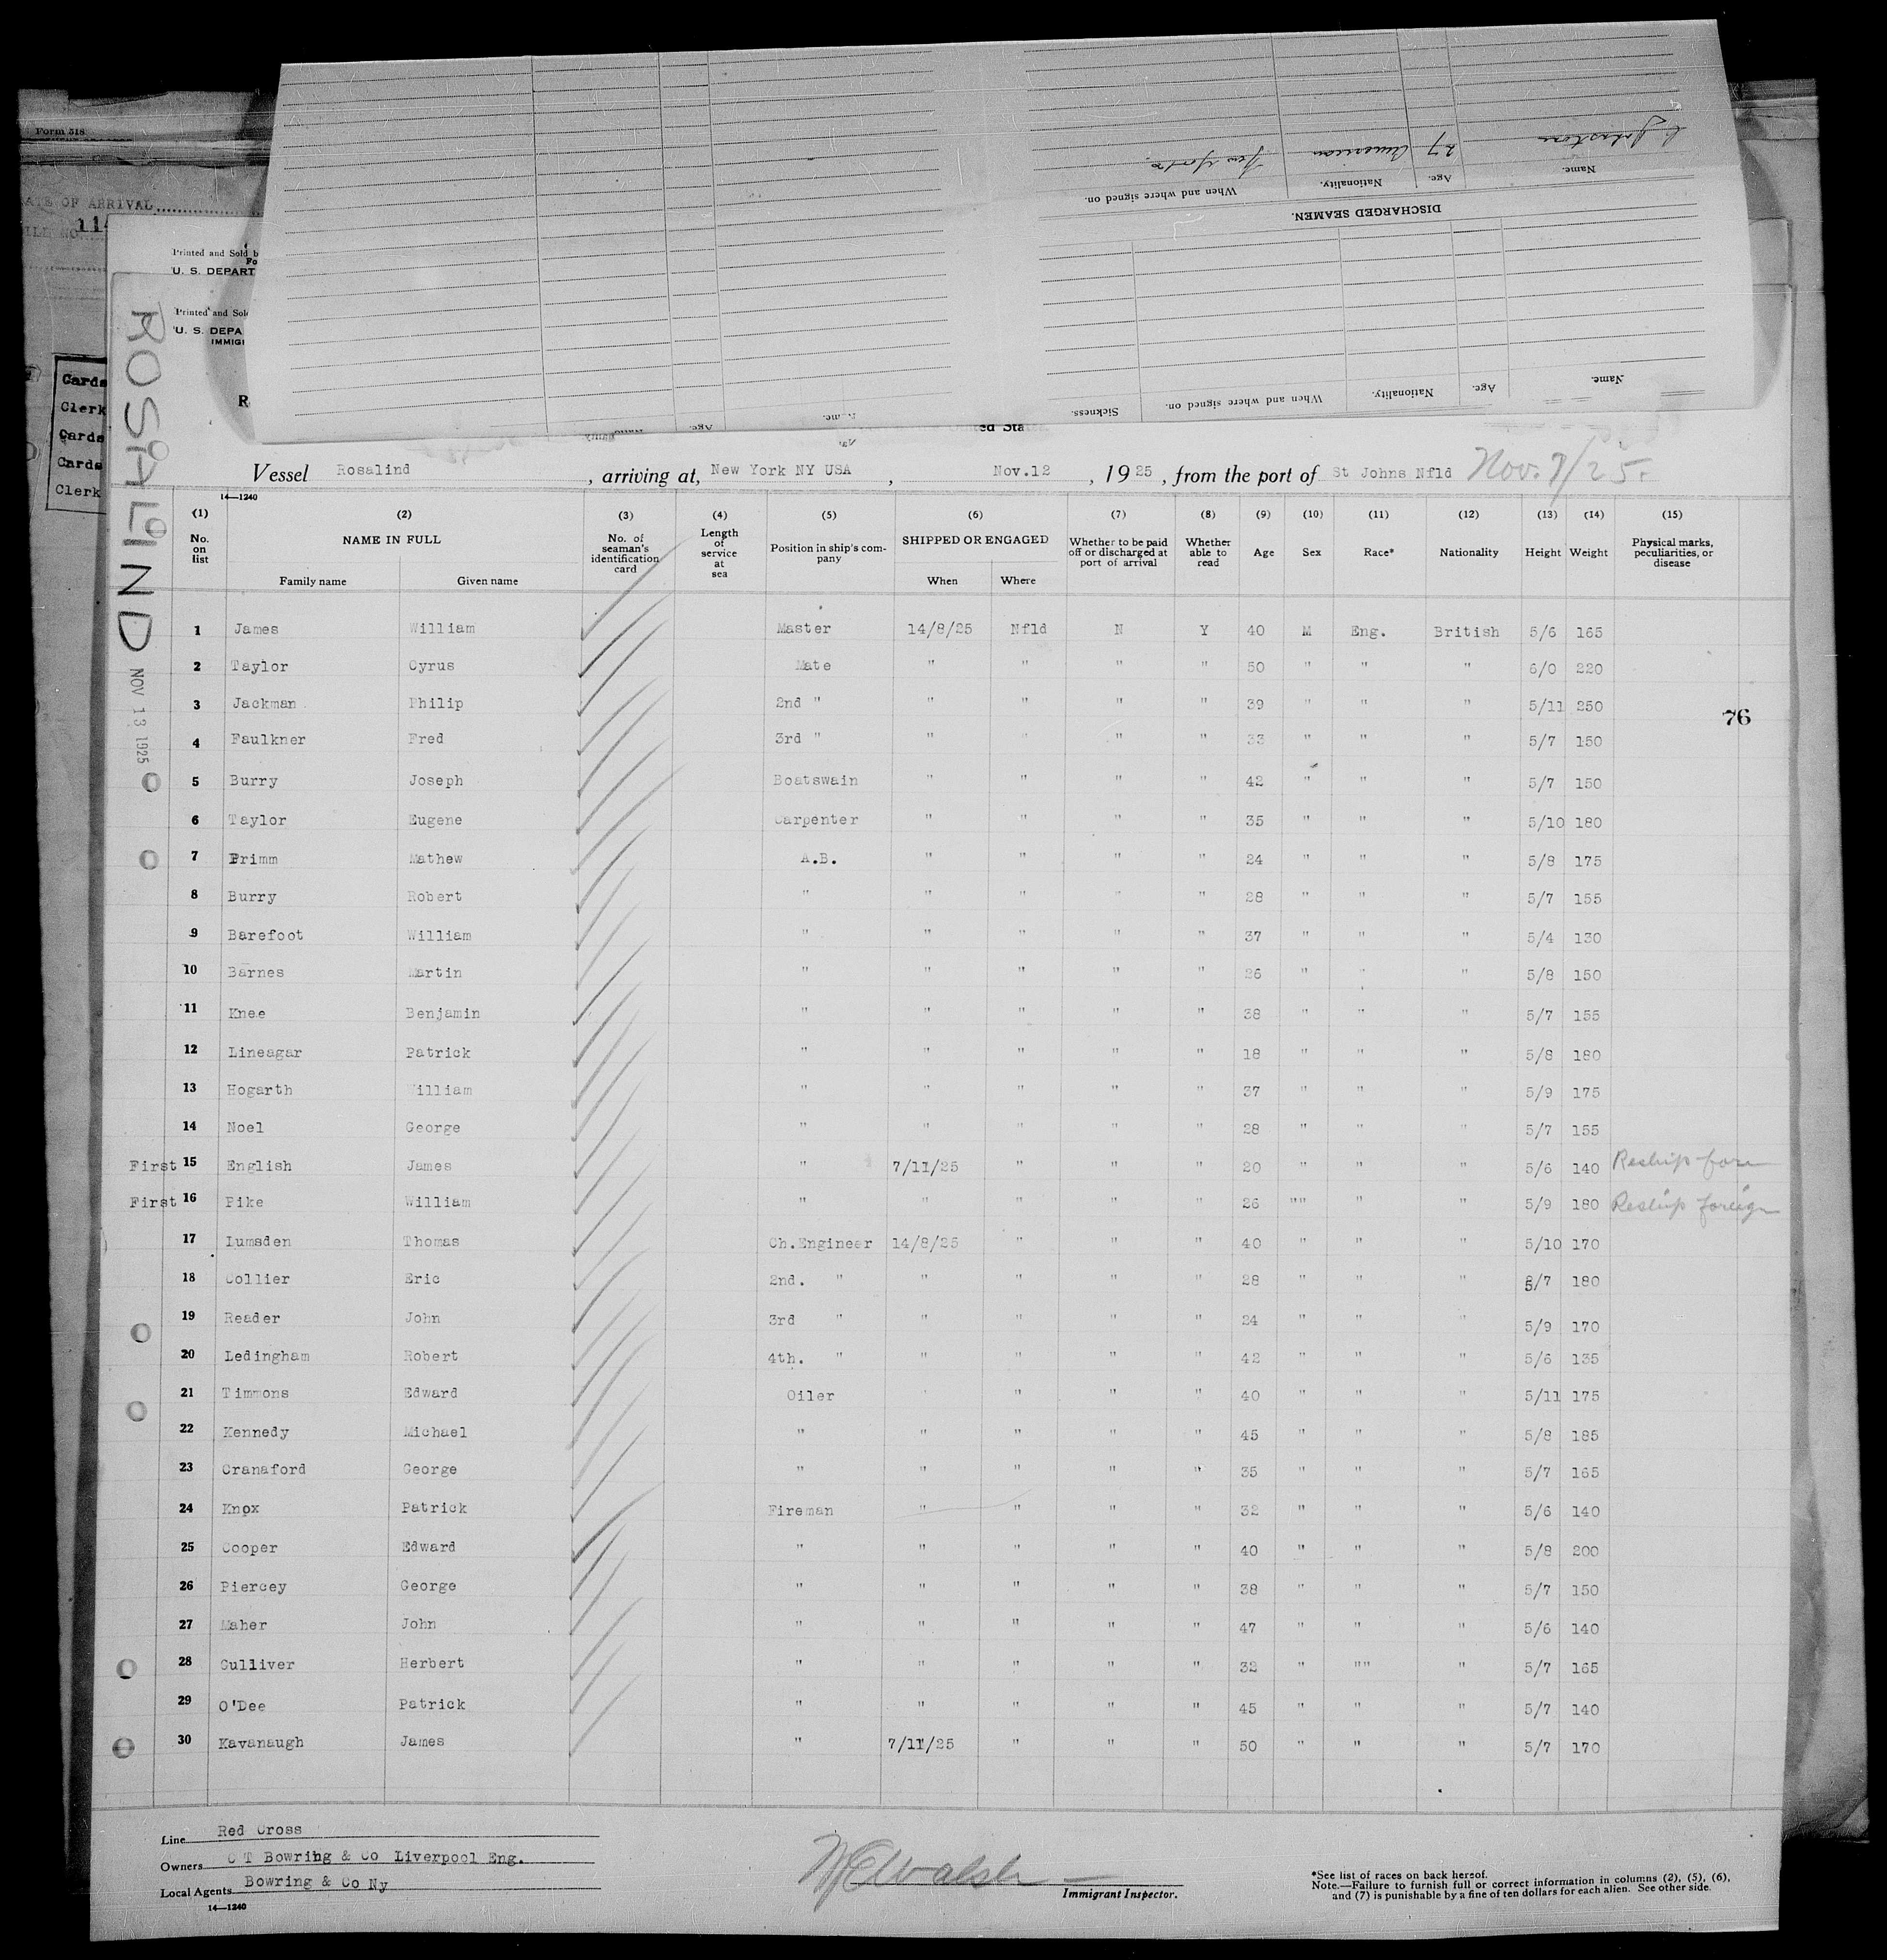 Form 518
DATE OF ARRIVAL
FILE NO. 114
Cards
Clerk
Cards
Cards
Clerk
Printed and Sold b
U. S. DEPART
Printed and Sol
U. S. DEPA
IMMIGR
R
ROSALIND
NOV 13 1925
Johnstone 27 American New York
Name. Age. Nationality. When and where signed on.
DISCHARGED SEAMEN.
Name. Age. Nationality. When and where signed on. Sickness.
ed Sta
Vessel Rosalind , arriving at, New York NY USA , Nov.12 , 1925 , from the port of St Johns Nfld Nov. 7/25.
14—1240
(1) (2) (3) (4) (5) (6) (7) (8) (9) (10) (11) (12) (13) (14) (15)
No. on list NAME IN FULL Family name Given name No. of seaman's identification card Length of service at sea Position in ship's company SHIPPED OR ENGAGED When Where Whether to be paid off or discharged at port of arrival Whether able to read Age Sex Race* Nationality Height Weight Physical marks, peculiarities, or disease
1 James William Master 14/8/25 Nfld N Y 40 M Eng. British 5/6 165
2 Taylor Cyrus Mate " " " " 50 " " " 6/0 220
3 Jackman Philip 2nd " " " " " 39 " " " 5/11 250
76
4 Faulkner Fred 3rd " " " " " 33 " " " 5/7 150
5 Burry Joseph Boatswain " " " " 42 " " " 5/7 150
6 Taylor Eugene Carpenter " " " " 35 " " " 5/10 180
7 Primm Mathew A.B. " " " " 24 " " " 5/8 175
8 Burry Robert " " " " " 28 " " " 5/7 155
9 Barefoot William " " " " " 37 " " " 5/4 130
10 Barnes Martin " " " " " 26 " " " 5/8 150
11 Knee Benjamin " " " " " 38 " " " 5/7 155
12 Lineagar Patrick " " " " " 18 " " " 5/8 180
13 Hogarth William " " " " " 37 " " " 5/9 175
14 Noel George " " " " " 28 " " " 5/7 155
First 15 English James " 7/11/25 " " " 20 " " " 5/6 140 Reship for
First 16 Pike William " " " " " 26 "" " " 5/9 180 Reship foreign
17 Lumsden Thomas Ch.Engineer 14/8/25 " " " 40 " " " 5/10 170
18 Collier Eric 2nd. " " " " " 28 " " " 5/7 180
19 Reader John 3rd " " " " " 24 " " " 5/9 170
20 Ledingham Robert 4th. " " " " " 42 " " " 5/6 135
21 Timmons Edward Oiler " " " " 40 " " " 5/11 175
22 Kennedy Michael " " " " " 45 " " " 5/8 185
23 Cranaford George " " " " " 35 " " " 5/7 165
24 Knox Patrick Fireman " " " " 32 " " " 5/6 140
25 Cooper Edward " " " " " 40 " " " 5/8 200
26 Piercey George " " " " " 38 " " " 5/7 150
27 Maher John " " " " " 47 " " " 5/6 140
28 Gulliver Herbert " " " " " 32 " "" " 5/7 165
29 O'Dee Patrick " " " " " 45 " " " 5/7 140
30 Kavanaugh James " 7/11/25 " " " 50 " " " 5/7 170
Line Red Cross
Owners C T Bowring & Co Liverpool Eng.
Local Agents Bowring & Co Ny
14—1240
W E Walsh
Immigrant Inspector.
*See list of races on back hereof.
Note.—Failure to furnish full or correct information in columns (2), (5), (6),
and (7) is punishable by a fine of ten dollars for each alien. See other side.